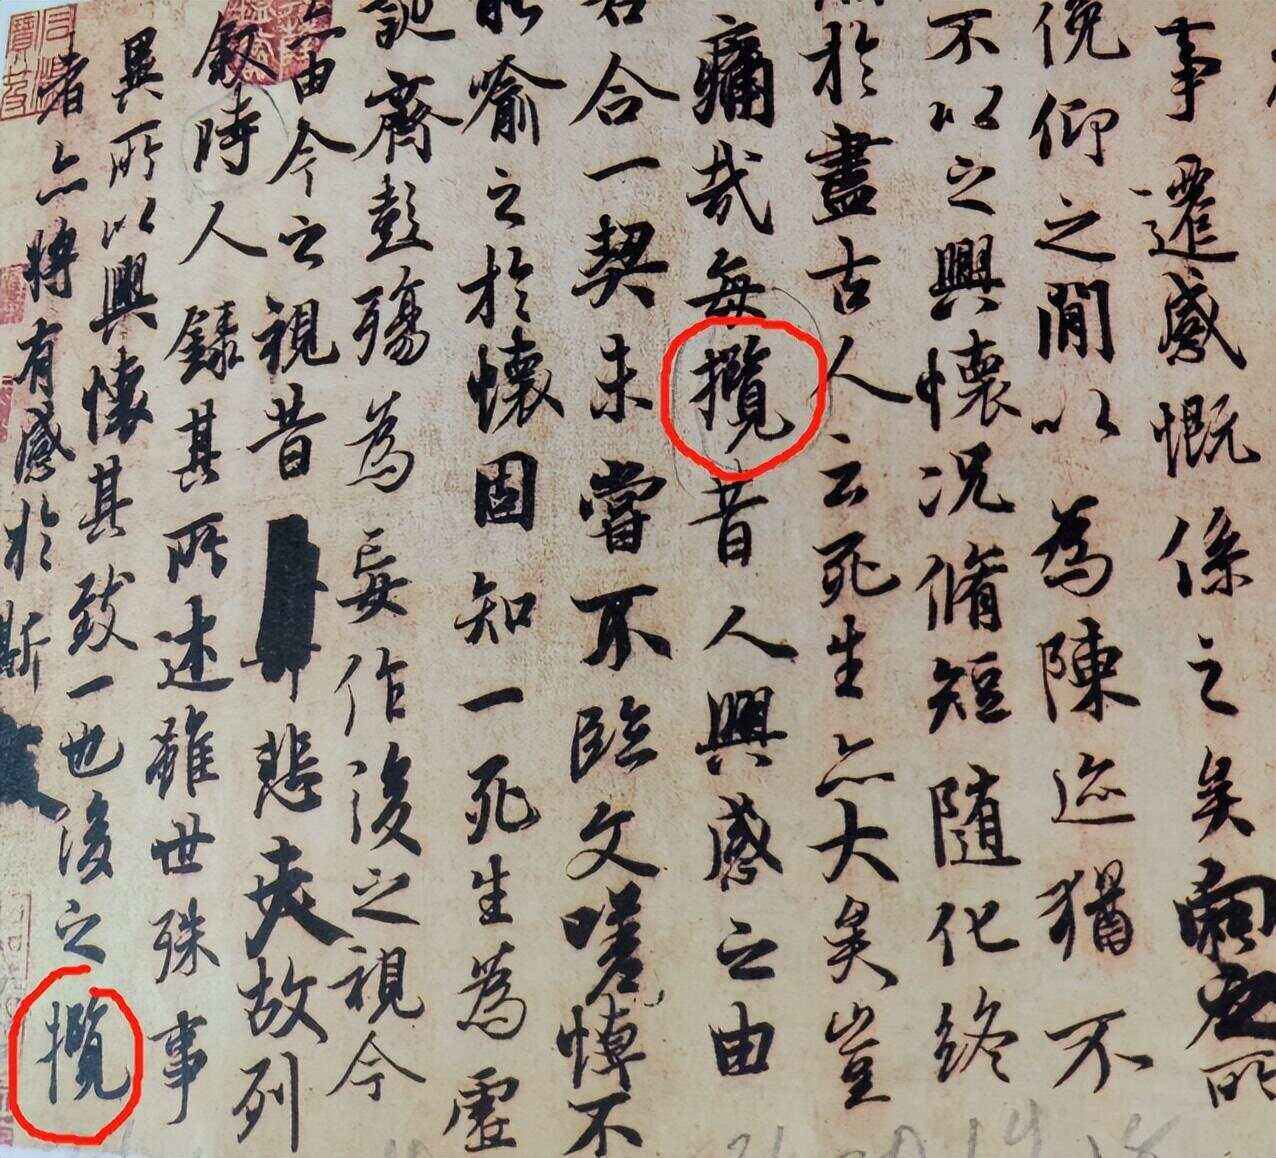 事遷感慨係之矣向之所
俛仰之閒以為陳迹猶不
不以之興懷況脩短随化終
於盡古人云死生亦大矣豈
痛哉每攬昔人興感之由
若合一契未嘗不臨文嗟悼不
能喻之於懷固知一死生為虛
誕齊彭殤為妄作後之視今
亦由今之視昔悲夫故列
叙時人錄其所述雖世殊事
異所以興懷其致一也後之攬
者亦將有感於斯